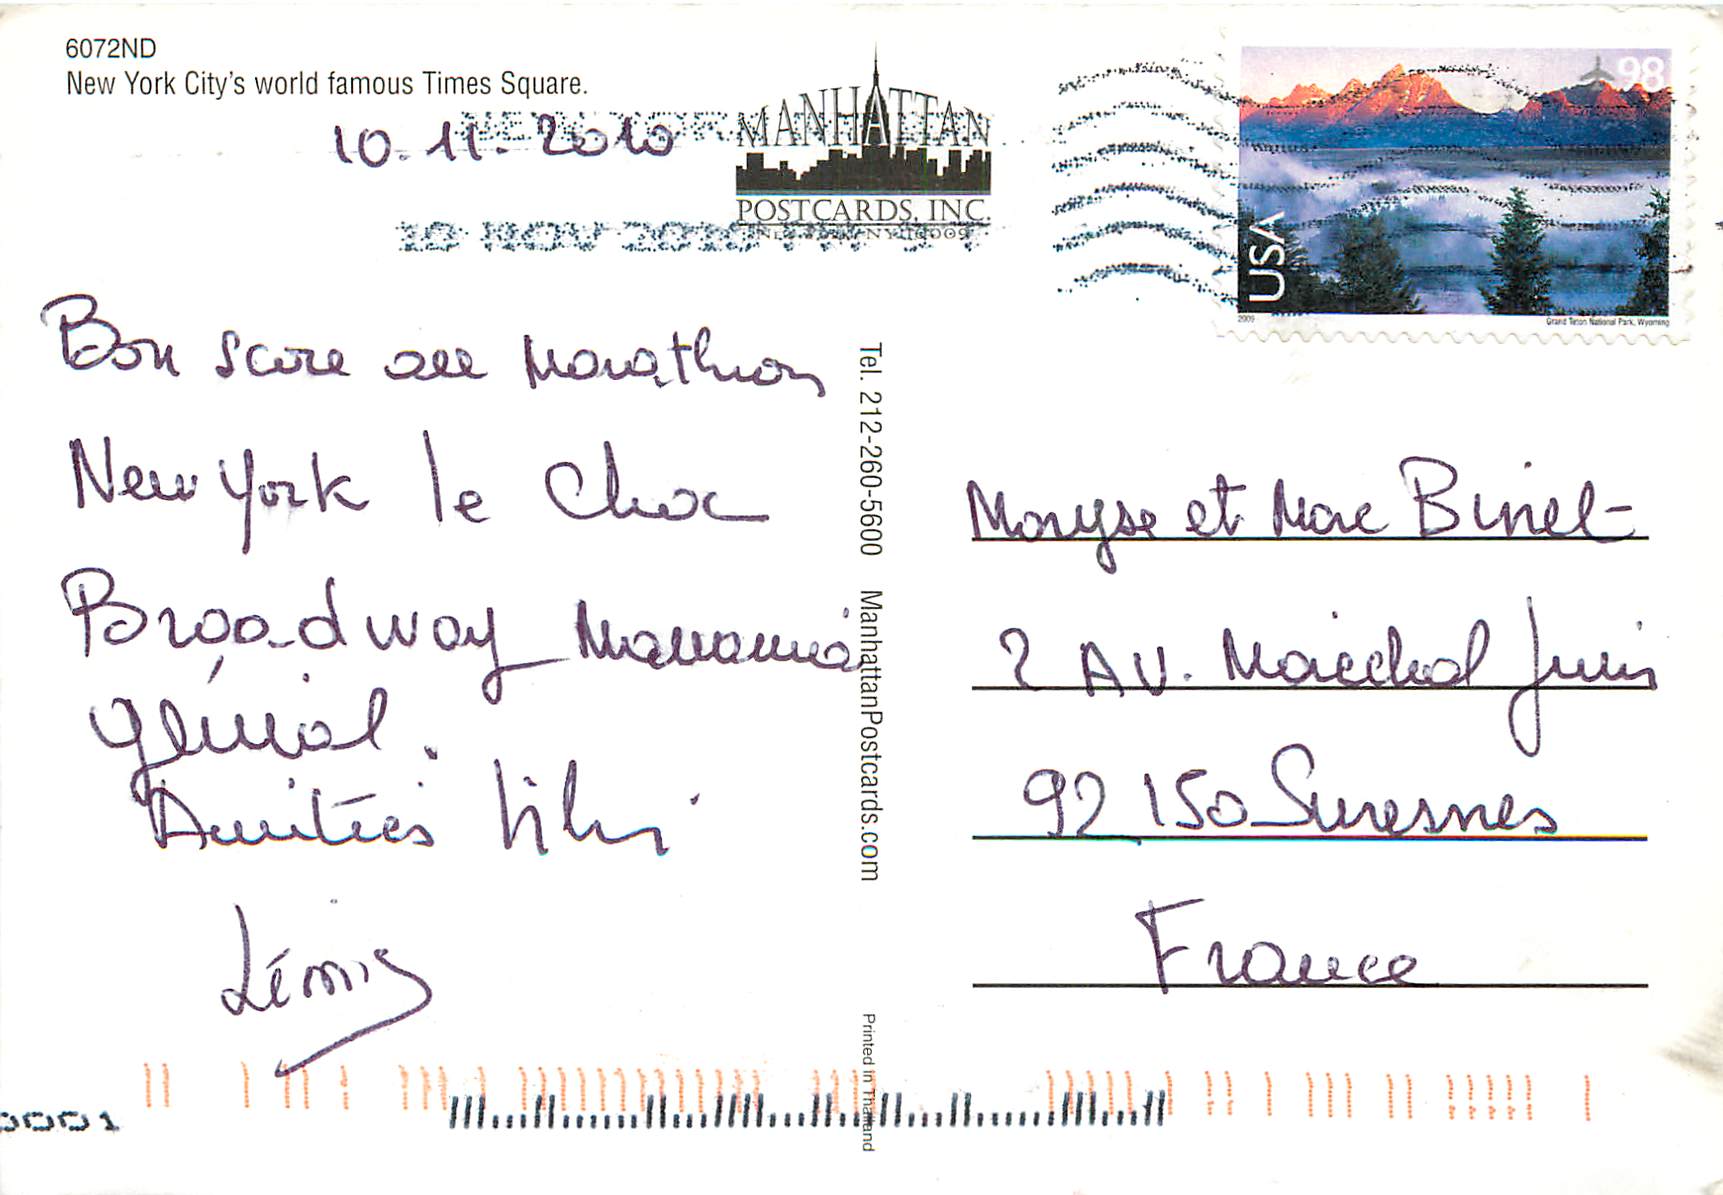 6072ND
New York City's world famous Times Square.
10.11.2010
MANHATTAN
POSTCARDS, INC.
NEW YORK, NY 10009
10 NOV 2010 PM
98
USA
2009
Grand Teton National Park, Wyoming
Bon score au Marathon
New York le Choc
Broadway Mamamia
génial.
Amitiés
Rémy
Tel. 212-260-5600 ManhattanPostcards.com
Printed in Thailand
Maryse et Marc Binet
2 AV. Maréchal Juin
92150 Suresnes
France
0001